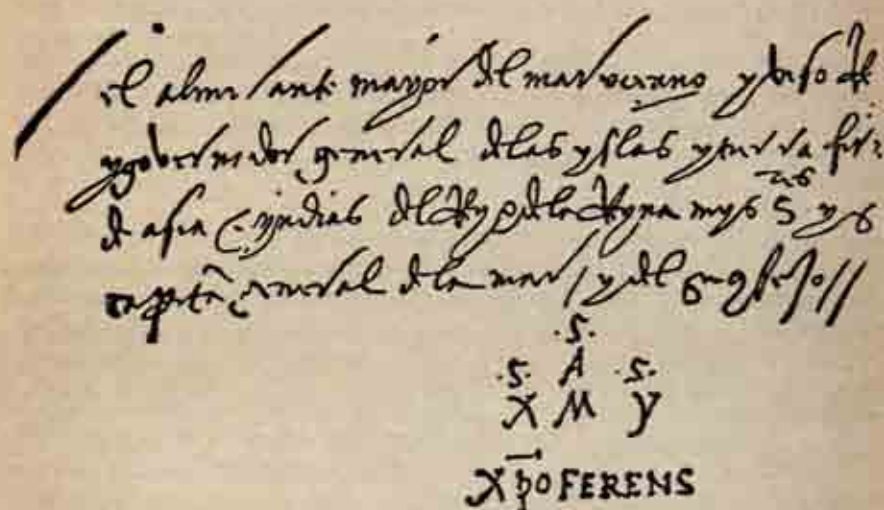 el almirante mayor del mar oceano y viso Rey
y governador general de las yslas y tierra fir
de asia & yndias del Rey & de la Reyna mys S res y
capitã general de la mar / y del consejo //
.S.
.S. A .S.
X M Y
Xp̄o FERENS